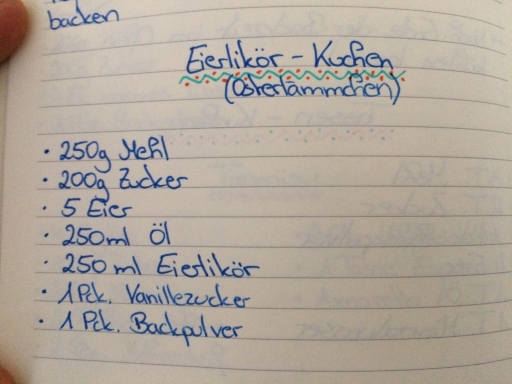 backen
Eierlikör - Kuchen
(Osterlämmchen)
• 250g Mehl
• 200g Zucker
• 5 Eier
• 250ml Öl
• 250 ml Eierlikör
• 1 Pck. Vanillezucker
• 1 Pck. Backpulver